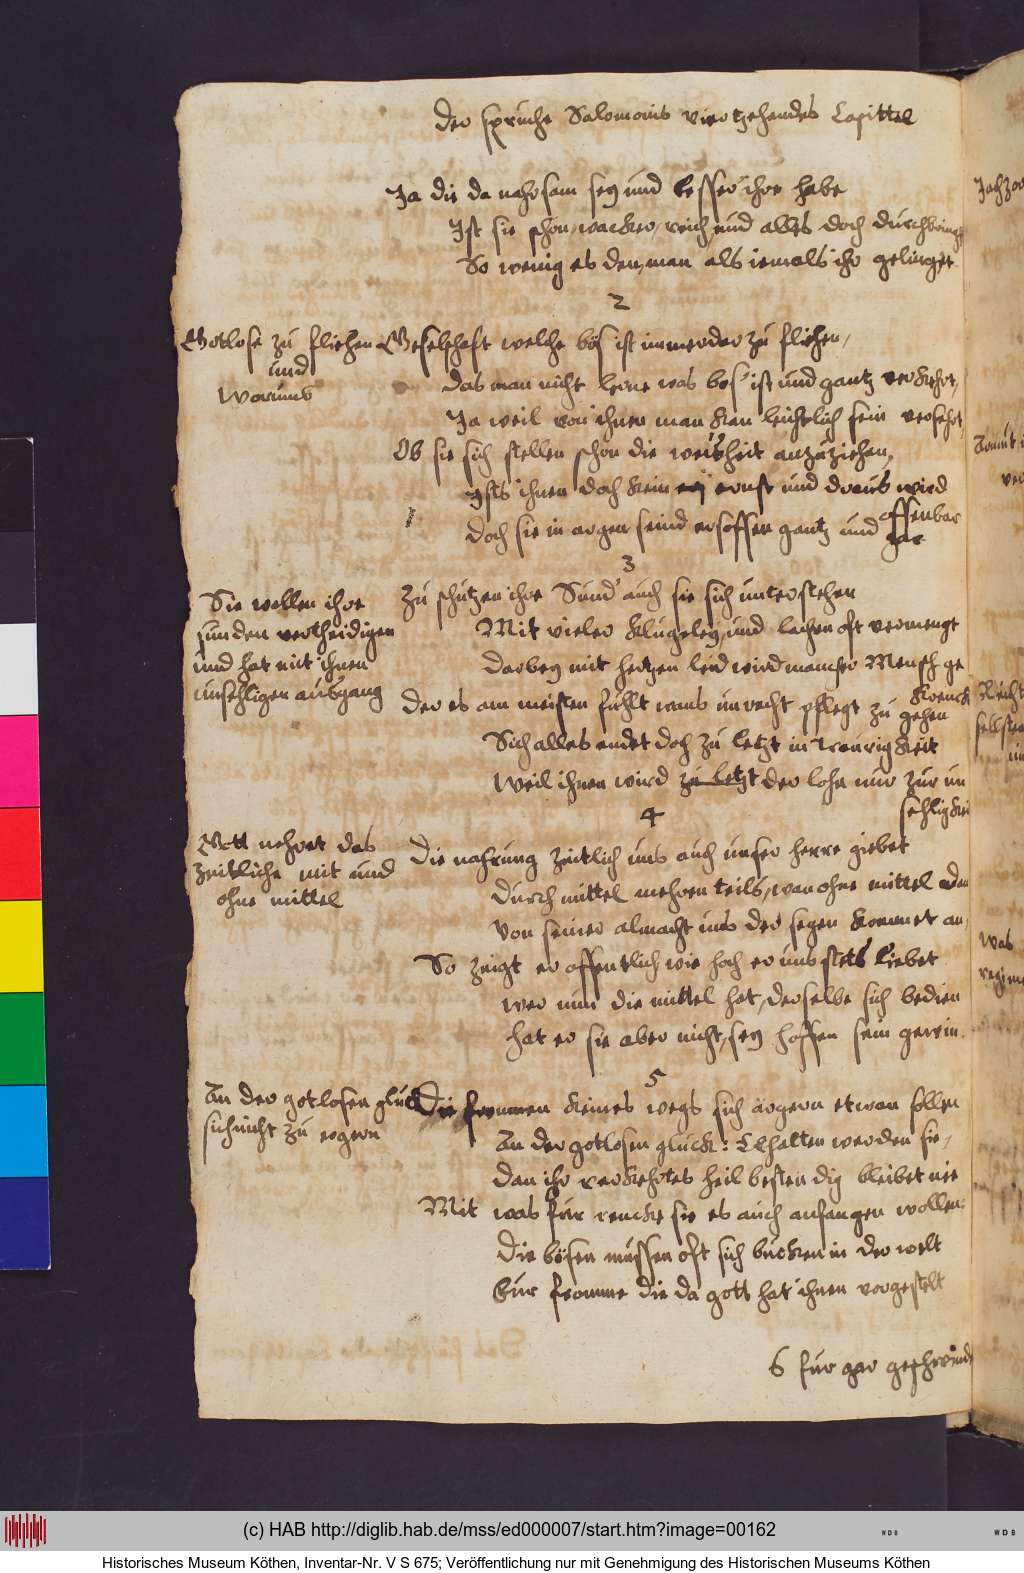 Der spruche Salomonis viertzehendes Capittel
Ja die da nahrsam sey und besser ihre habe
Ist sie schon, wacker, reich, und alles doch durchbringt
So wenig es den, man als iemals ihr gelinget
2
Gotlose zu fliehen
und
Warumb
Geselschaft welche bös ist immerdar zu fliehen,
Das man nicht lerne was bos' ist und gantz verkehrt,
Ja weil von ihnen man kan leichtlich sein versehrt,
Ob sie sich stellen schon die weisheit anzuziehen,
Ists ihnen doch kein ernst und draus wird
offenbar
Doch sie in argen seind ersoffen gantz und gar
3
Sie wollen ihre
sunden vertheidigen
und hat mit ihnen
unsehligen ausgang
Zu schutzen ihre Sund' auch sie sich unterstehen
Mit vieler klugeley, und lachen oft vermengt
Darbey mit hertzen leid wird mancher Mensch ge
krenckt
Der es am meisten fühlt wans unrecht pflegt zu gehen
Sich alles endet doch zu letzt in Traurigkeit
Weil ihnen wird zu letzt der lohn nur zur un
sehligkei
4
Gott nehret das
zeitliche mit und
ohne mittel
Die nahrung zeitlich uns auch unser herre giebet
Durch mittel mehren teils, wan ohne mittel dan
Von seiner almacht uns der segen kommet an,
So zeigt er offentlich wie hoch er uns stets liebet
Wer nun die mittel hat, derselbe sich bedien
Hat er sie aber nicht, sey hoffen sein gewin.
5
An der gotlosen gluck
sich nicht zu ergern
Die frommen keines wegs sich ärgern etwan sollen
An der gotlosen gluck: Erhalten werden sie,
Dan ihr verkehrtes heil bestendig bleibet nie
Mit was für rencke sie es auch anfangen wollen:
Die bösen mussen oft sich bucken in der welt
Fur fromme die da gott hat ihnen vorgestelt
6 fur gar geschwinde
Was
(c) HAB http://diglib.hab.de/mss/ed000007/start.htm?image=00162
WDB
WDB
Historisches Museum Köthen, Inventar-Nr. V S 675; Veröffentlichung nur mit Genehmigung des Historischen Museums Köthen